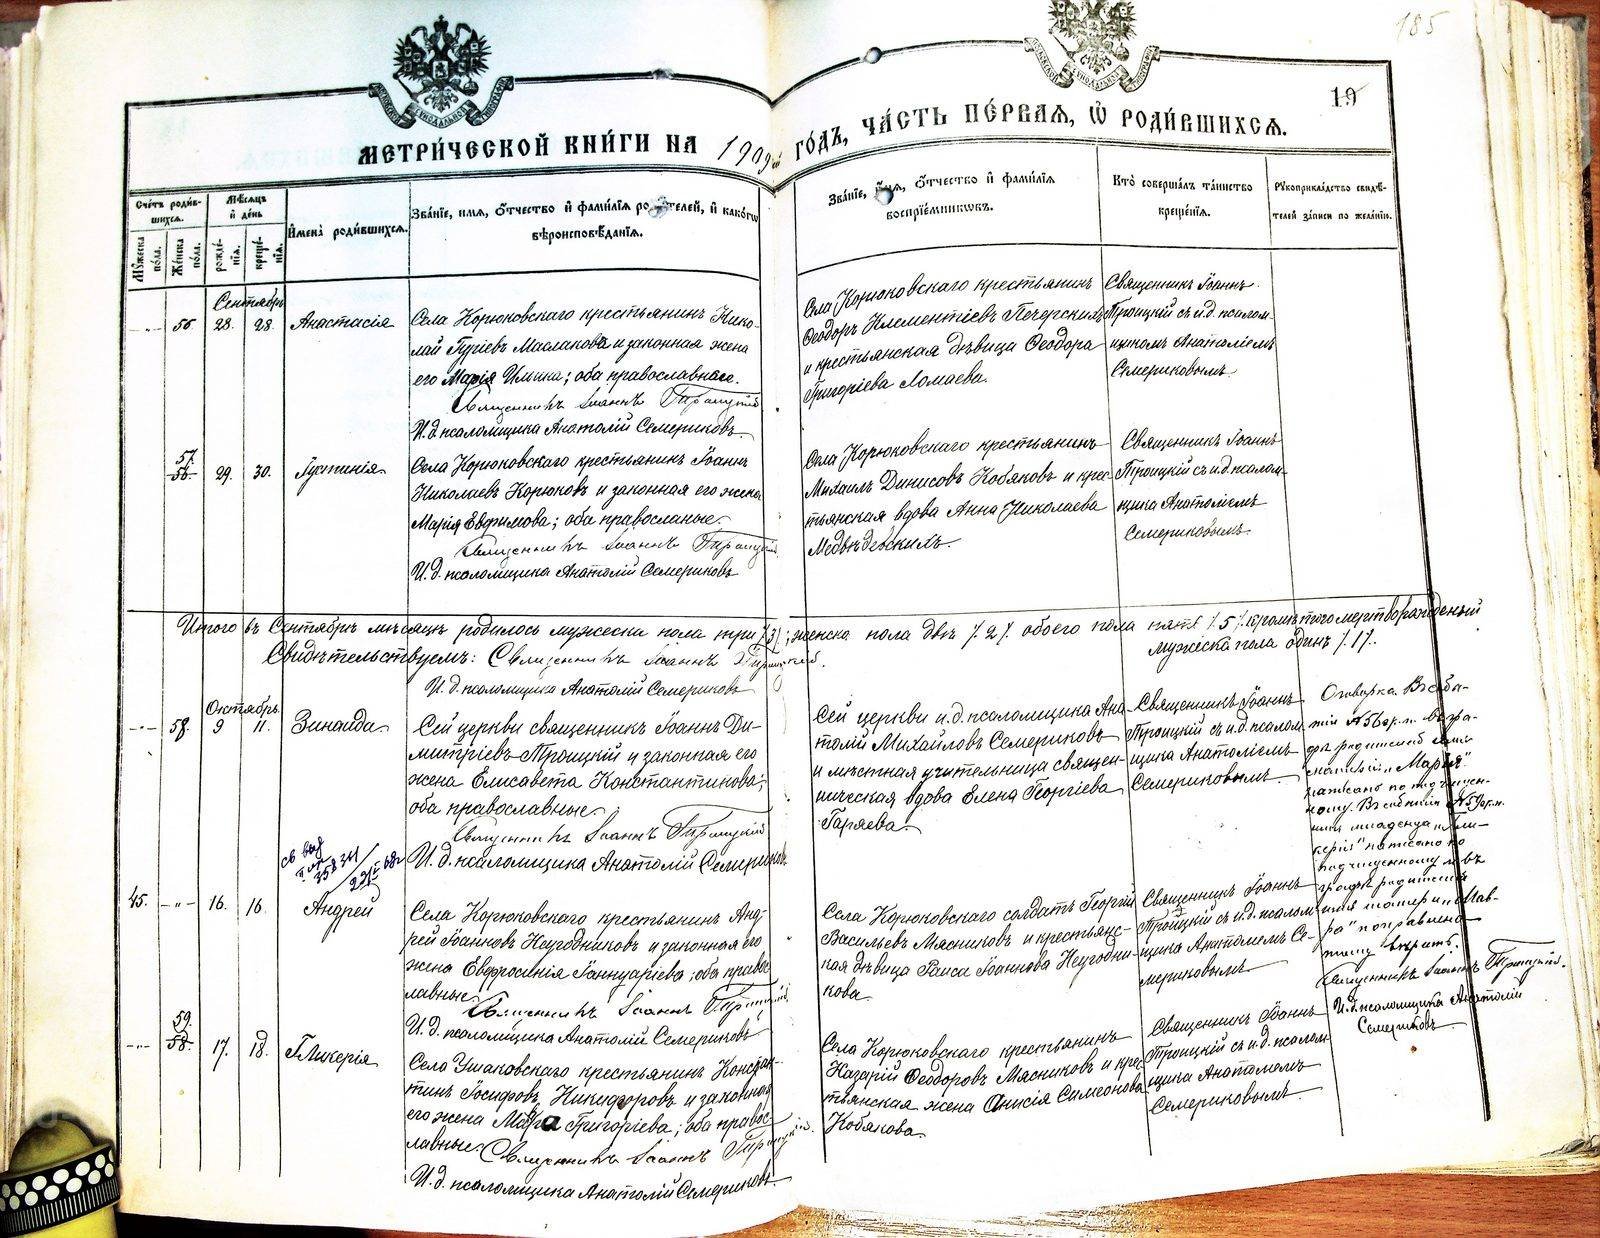 185
19
МЕТРИ́ЧЕСКОЙ КНИ́ГИ НА 1909й ГО́ДЪ, ЧА́СТЬ ПЕ́РВАЯ, Ѡ РОДИ́ВШИХСЯ.
Сче́тъ роди́в-
шихся.
Мѣ́сяцъ
и҆ де́нь
Му́жеска
по́ла.
Же́нска
по́ла.
рожде́-
нїя.
креще́-
нїя.
И҆мена̀ роди́вшихся.
Зва́нїе, и҆мя, ѻ҆́тчество и҆ фами́лїя роди́телей, и҆ како́гѡ
вѣроисповѣ́данїя.
Зва́нїе, и҆́мя, ѻ҆́тчество и҆ фами́лїя
воспрїе́мниковъ.
Кто̀ соверша́лъ та́инство
креще́нїя.
Рꙋкоприкла́дство свидѣ́-
телей за́писи по жела́нїю.
Сентябрь
-"- 56 28. 28. Анастасія
Села Корюковскаго крестьянинъ Нико-
лай Гуріевъ Маслаковъ и законная жена
его Марія Ильина; оба православные.
Священникъ Іоаннъ Троицкій
И.д. псаломщика Анатолій Семериковъ
Села Корюковскаго крестьянинъ
Ѳеодоръ Климентіевъ Печерскихъ
и крестьянская дѣвица Ѳеодора
Григоріева Ломаева.
Священникъ Іоаннъ
Троицкій съ и.д. псалом-
щикомъ Анатоліемъ
Семериковымъ.
57.
56. 29. 30. Іустинія
Села Корюковскаго крестьянинъ Іоаннъ
Николаевъ Корюковъ и законная его жена
Марія Евфимова; оба православные.
Священникъ Іоаннъ Троицкій
И.д. псаломщика Анатолій Семериковъ
Села Корюковскаго крестьянинъ
Михаилъ Динисовъ Кобяковъ и крес-
тьянская вдова Анна Николаева
Священникъ Іоаннъ
Троицкій съ и.д. псалом-
щика Анатоліемъ
Семериковымъ.
Итого въ Сентябрѣ мѣсяцѣ родилось мужеска пола три /3/; женска пола двѣ /2/ обоего пола пять /5/ кромѣ того мертворожденый
мужеска пола одинъ /1/.
Свидѣтельствуемъ: Священникъ Іоаннъ Троицкій.
И.д. псаломщика Анатолій Семериковъ
Октябрь
-"- 58. 9 11. Зинаида
Сей церкви священникъ Іоаннъ Ди-
митріевъ Троицкій и законная его
жена Елисавета Константинова;
оба православные
Священникъ Іоаннъ Троицкій
И.д. псаломщика Анатолій Семериковъ
Сей церкви и.д. псаломщика Ана-
толій Михайловъ Семериковъ
и мѣстная учительница священ-
ническая вдова Елена Георгіева
Гаряева.
Священникъ Іоаннъ
Троицкій съ и.д. псалом-
щика Анатоліемъ
Семериковымъ.
Оговорка. Въ
родителей
"Марія"
написано по подчищен-
ному.
младенца "Гли-
керія" написано по
подчищенному и въ
графѣ родителей
имя матери "Мав-
ра" поправлено
вѣрить.
Священникъ Іоаннъ Троицкій.
И.д. псаломщика Анатолій
Семериковъ
св выд
45. -"- 16. 16. Андрей
Села Корюковскаго крестьянинъ Анд-
рей Іоанновъ Неугодниковъ и законная его
жена Евфросинія Іаннуаріева; оба правос-
лавные.
Священникъ Іоаннъ Троицкій
И.д. псаломщика Анатолій Семериковъ
Села Корюковскаго солдатъ Георгій
Васильевъ Мясниковъ и крестьянс-
кая дѣвица Раиса Іоаннова Неугодни-
кова
Священникъ Іоаннъ
Троицкій съ и.д. псалом-
щика Анатоліемъ Се-
мериковымъ
59.
-"- 58. 17. 18. Гликерія
Села Ушаковскаго крестьянинъ Констан-
тинъ Іосифовъ Никифоровъ и законная
его жена Мавра Григоріева; оба правос-
лавные. Священникъ Іоаннъ Троицкій.
И.д. псаломщика Анатолій Семериковъ
Села Корюковскаго крестьянинъ
Назарій Ѳеодоровъ Мясниковъ и крес-
тьянская жена Анисія Симеонова
Кобякова
Священникъ Іоаннъ
Троицкій съ и.д. псалом-
щика Анатоліемъ
Семериковымъ.